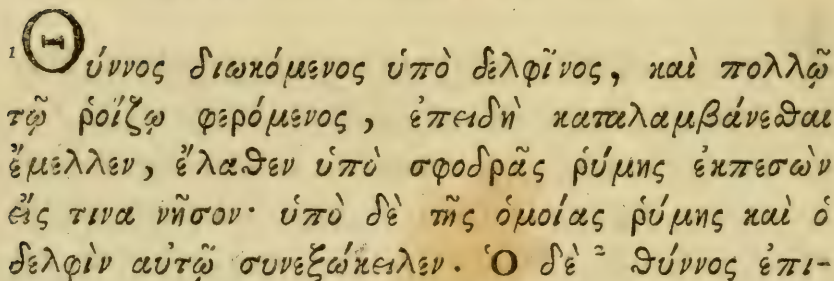 ¹ Θύννος διωκόμενος ὑπὸ δελφῖνος, καὶ πολλῷ
τῷ ῥοίζῳ φερόμενος, ἐπειδὴ καταλαμβάνεσθαι
ἔμελλεν, ἔλαθεν ὑπὸ σφοδρᾶς ῥύμης ἐκπεσὼν
εἴς τινα νῆσον· ὑπὸ δὲ τῆς ὁμοίας ῥύμης καὶ ὁ
δελφὶν αὐτῷ συνεξώκειλεν. Ὁ δὲ ² θύννος ἐπι-